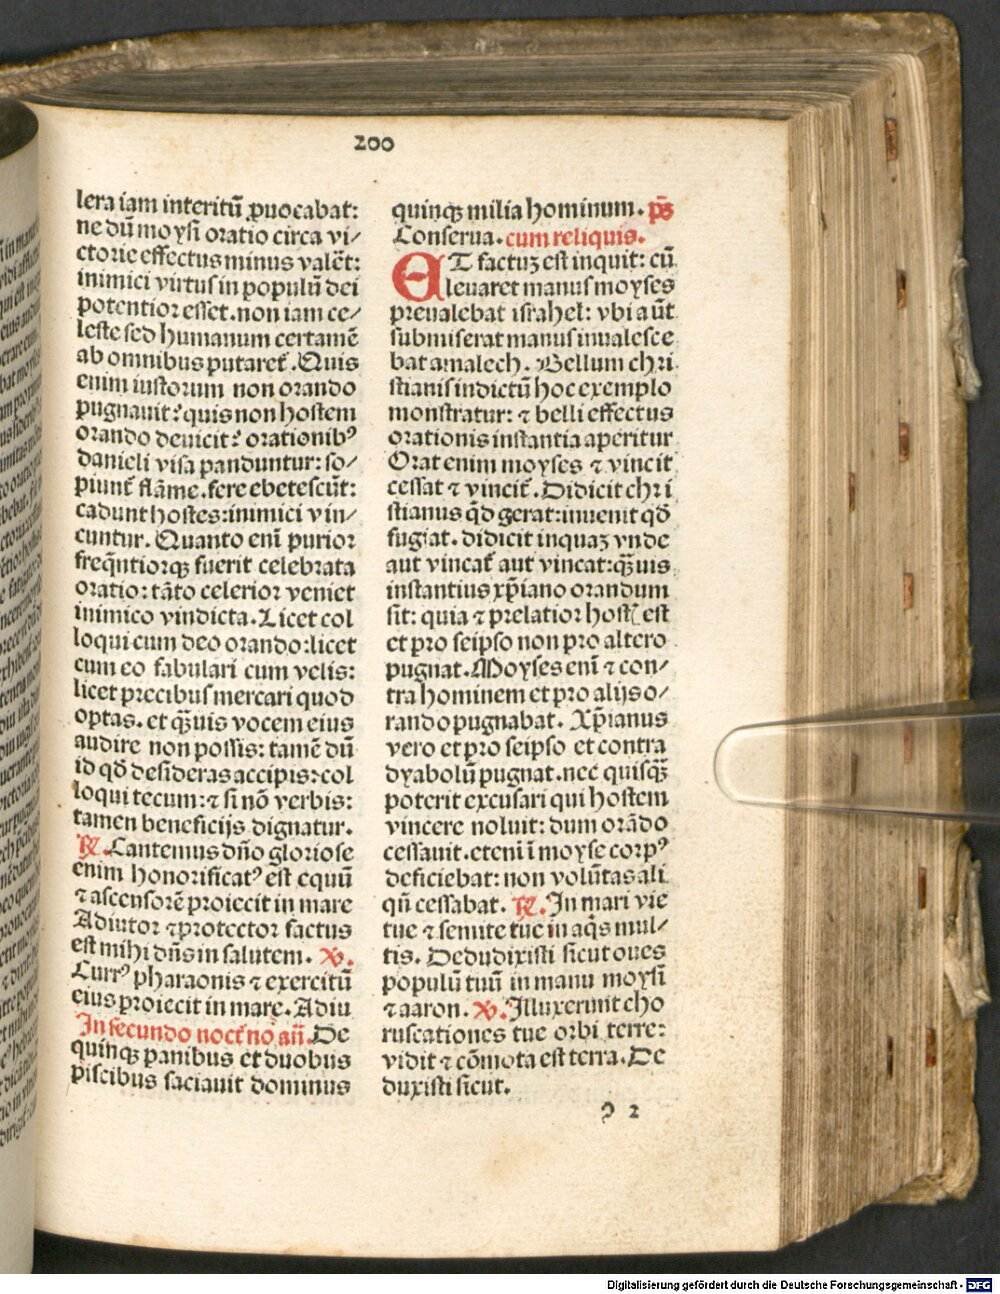 200
lera iam interitū ꝓuocabat:
ne dū moysi oratio circa vi⸗
ctorie effectus minus valēt:
inimici virtus in populū dei
potentior esset. non iam ce⸗
leste sed humanum certamē
ab omnibus putaret᷑. Quis
enim iustorum non orando
pugnauit? quis non hostem
orando deuicit? orationibꝰ
danieli visa panduntur: so⸗
piunt᷑ flāme. fere ebetescūt:
cadunt hostes: inimici vin⸗
cuntur. Quanto eni purior
freq̄ntiorqꝫ fuerit celebrata
oratio: tāto celerior veniet
inimico vindicta. Licet col
loqui cum deo orando: licet
cum eo fabulari cum velis:
licet precibus mercari quod
optas. et q̄ꝫuis vocem eius
audire non possis: tamē dū
id qd̄ desideras accipis: col
loqui tecum: ⁊ si nō verbis:
tamen beneficijs dignatur.
℟. Cantemus dn̄o gloriose
enim honorificatꝰ est equū
⁊ ascensorē proiecit in mare
Adiutor ⁊ protector factus
est mihi dn̄s in salutem. ℣.
Currꝰ pharaonis ⁊ exercitū
eius proiecit in mare. Adiu
In secundo noct᷑no an̄. De
quinqꝫ panibus et duobus
piscibus saciauit dominus
quinqꝫ milia hominum. p̄s
Conserua. cum reliquis.
ET factuꝫ est inquit: cū
leuaret manus moyses
preualebat israhel: vbi aūt
submiserat manus inualesce
bat amalech. Bellum chri
stianis indictū hoc exemplo
monstratur: ⁊ belli effectus
orationis instantia aperitur
Orat enim moyses ⁊ vincit
cessat ⁊ vincit᷑. Didicit chri
stianus qd̄ gerat: inuenit qd̄
fugiat. didicit inquaꝫ vnde
aut vincat᷑ aut vincat: q̄ꝫuis
instantius xp̄iano orandum
sit: quia ⁊ prelatior hostꝭ est
et pro seipso non pro altero
pugnat. Moyses eni ⁊ con⸗
tra hominem et pro alijs o⸗
rando pugnabat. Xp̄ianus
vero et pro seipso et contra
dyabolū pugnat. nec quisq̄ꝫ
poterit excusari qui hostem
vincere noluit: dum orādo
cessauit. eteni ī moyse corpꝰ
deficiebat: non volūtas ali
qn̄ cessabat. ℟. In mari vie
tue ⁊ semite tue in aq̄s mul⸗
tis. Dedudixisti sicut oues
populū tuū in manu moysi
⁊ aaron. ℣. Illuxerunt cho
ruscationes tue orbi terre:
vidit ⁊ cōmota est terra. De
duxisti sicut.
ꝯ 2
Digitalisierung gefördert durch die Deutsche Forschungsgemeinschaft - DFG